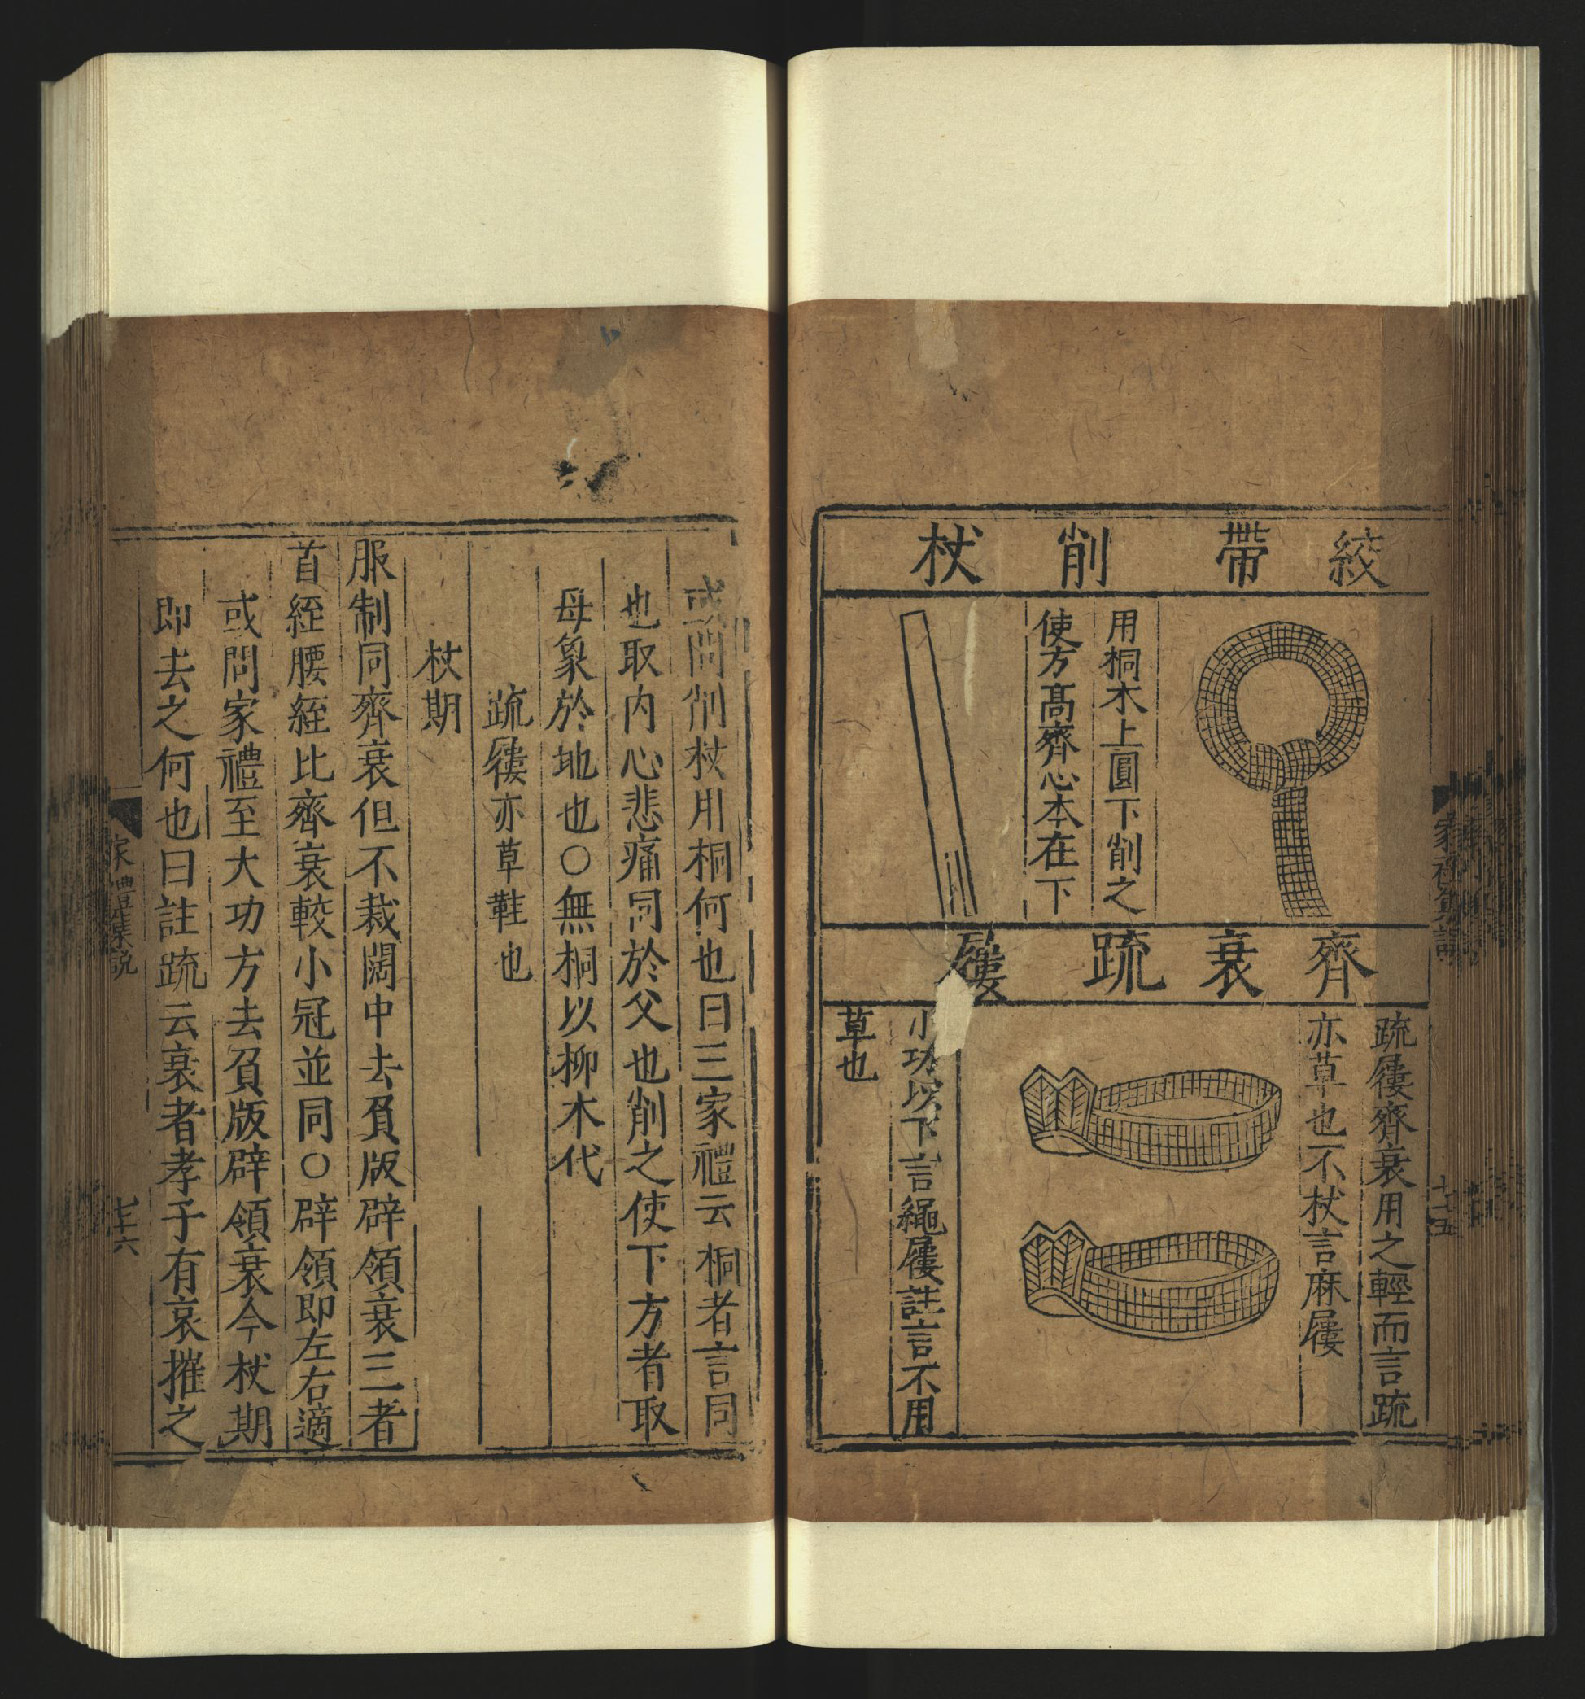 絞帶 削杖
用桐木上圓下削之
使方高齊心本在下
齊衰疏屨
疏屨齊衰用之輕而言疏
亦草也不杖言麻屨
小功以下言繩屨註言不用
草也
或問削杖用桐何也曰三家禮云桐者言同
也取内心悲痛同於父也削之使下方者取
母象於地也○無桐以柳木代
疏屨亦草鞋也
杖期
服制同齊衰但不裁闊中去負版辟領衰三者
首絰腰絰比齊衰較小冠並同○辟領即左右適
或問家禮至大功方去負版辟領衰今杖期
即去之何也曰註疏云衰者孝子有哀摧之
家禮集說
七十六